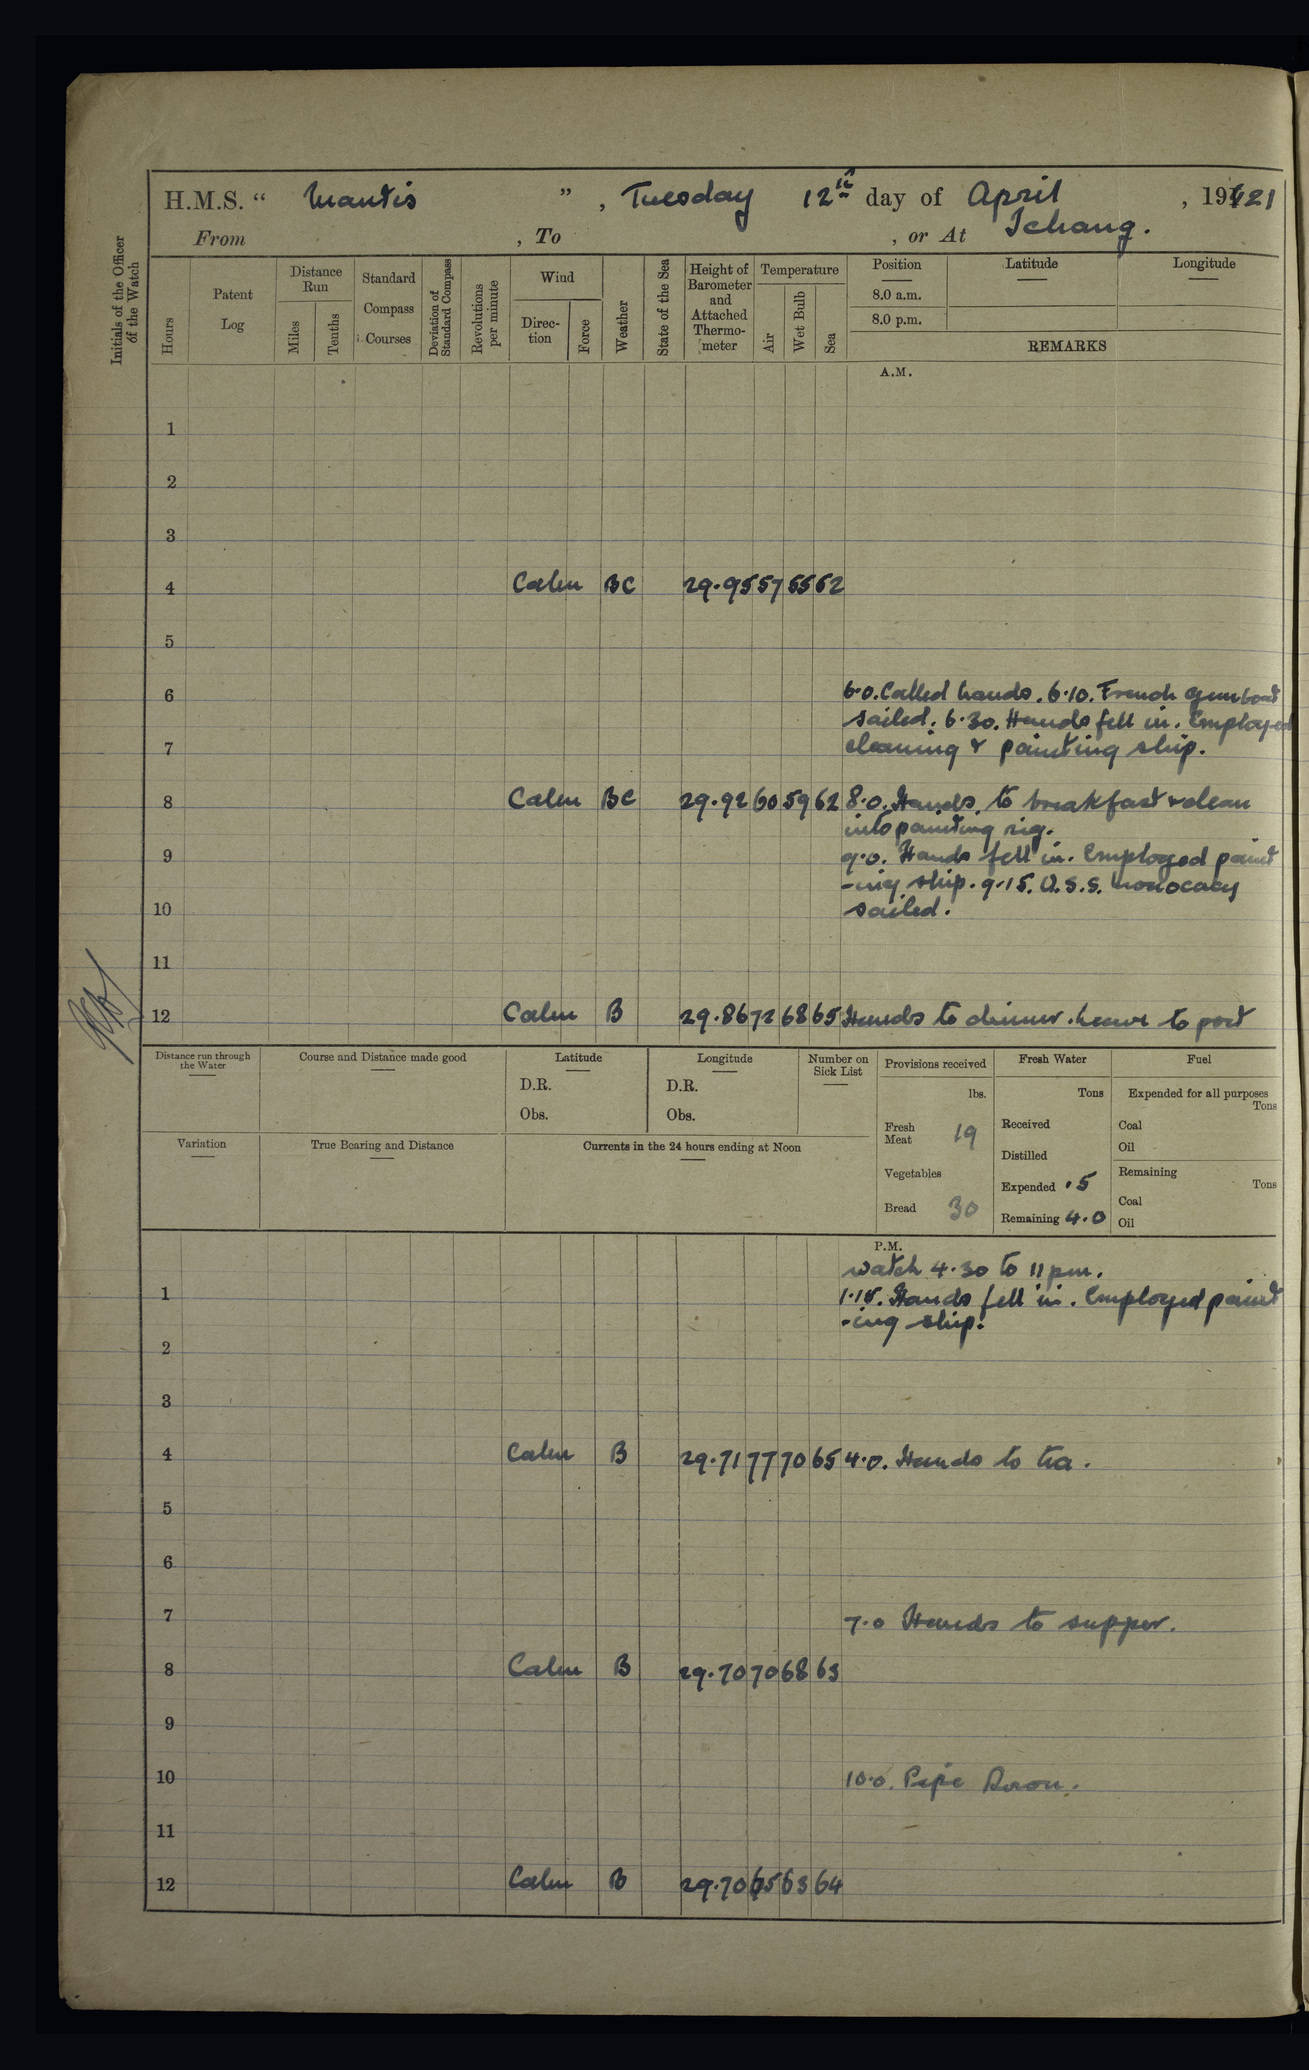 H.M.S. " Mantis ", Tuesday 12th day of April, 1921
From , To , or At Ichang.
Initials of the Officer of the Watch
Hours
Patent Log
Distance Run
Miles
Tenths
Standard Compass Courses
Deviation of Standard Compass
Revolutions per minute
Wind
Direction
Force
Weather
State of the Sea
Height of Barometer and Attached Thermo-meter
Temperature
Air
Wet Bulb
Sea
Position
8.0 a.m.
8.0 p.m.
Latitude
Longitude
REMARKS
A.M.
1
2
3
4 Calm BC 29.95 57 55 52
5
6 6.0. Called hands. 6.10. French gunboat
sailed. 6.30. Hands fell in. Employed
7 cleaning & painting ship.
8 Calm BC 29.92 60 59 62 8.0. Hands to breakfast & clean
into painting rig.
9 9.0. Hands fell in. Employed paint
-ing ship. 9.15. U.S.S. Monocacy
10 sailed.
11
12 Calm B 29.86 72 68 65 Hands to dinner. Leave to port
Distance run through the Water
Course and Distance made good
Latitude
D.R.
Obs.
Longitude
D.R.
Obs.
Number on Sick List
Provisions received
lbs.
Fresh Meat 19
Vegetables
Bread 30
Fresh Water
Tons
Received
Distilled
Expended .5
Remaining 4.0
Fuel
Expended for all purposes
Tons
Coal
Oil
Remaining
Tons
Coal
Oil
Variation
True Bearing and Distance
Currents in the 24 hours ending at Noon
P.M.
watch 4.30 to 11 pm.
1 1.15. Hands fell in. Employed paint
-ing ship.
2
3
4 Calm B 29.71 77 70 65 4.0. Hands to tea.
5
6
7 7.0 Hands to supper.
8 Calm B 29.70 70 68 63
9
10 10.0. Pipe Down.
11
12 Calm B 29.70 65 63 64